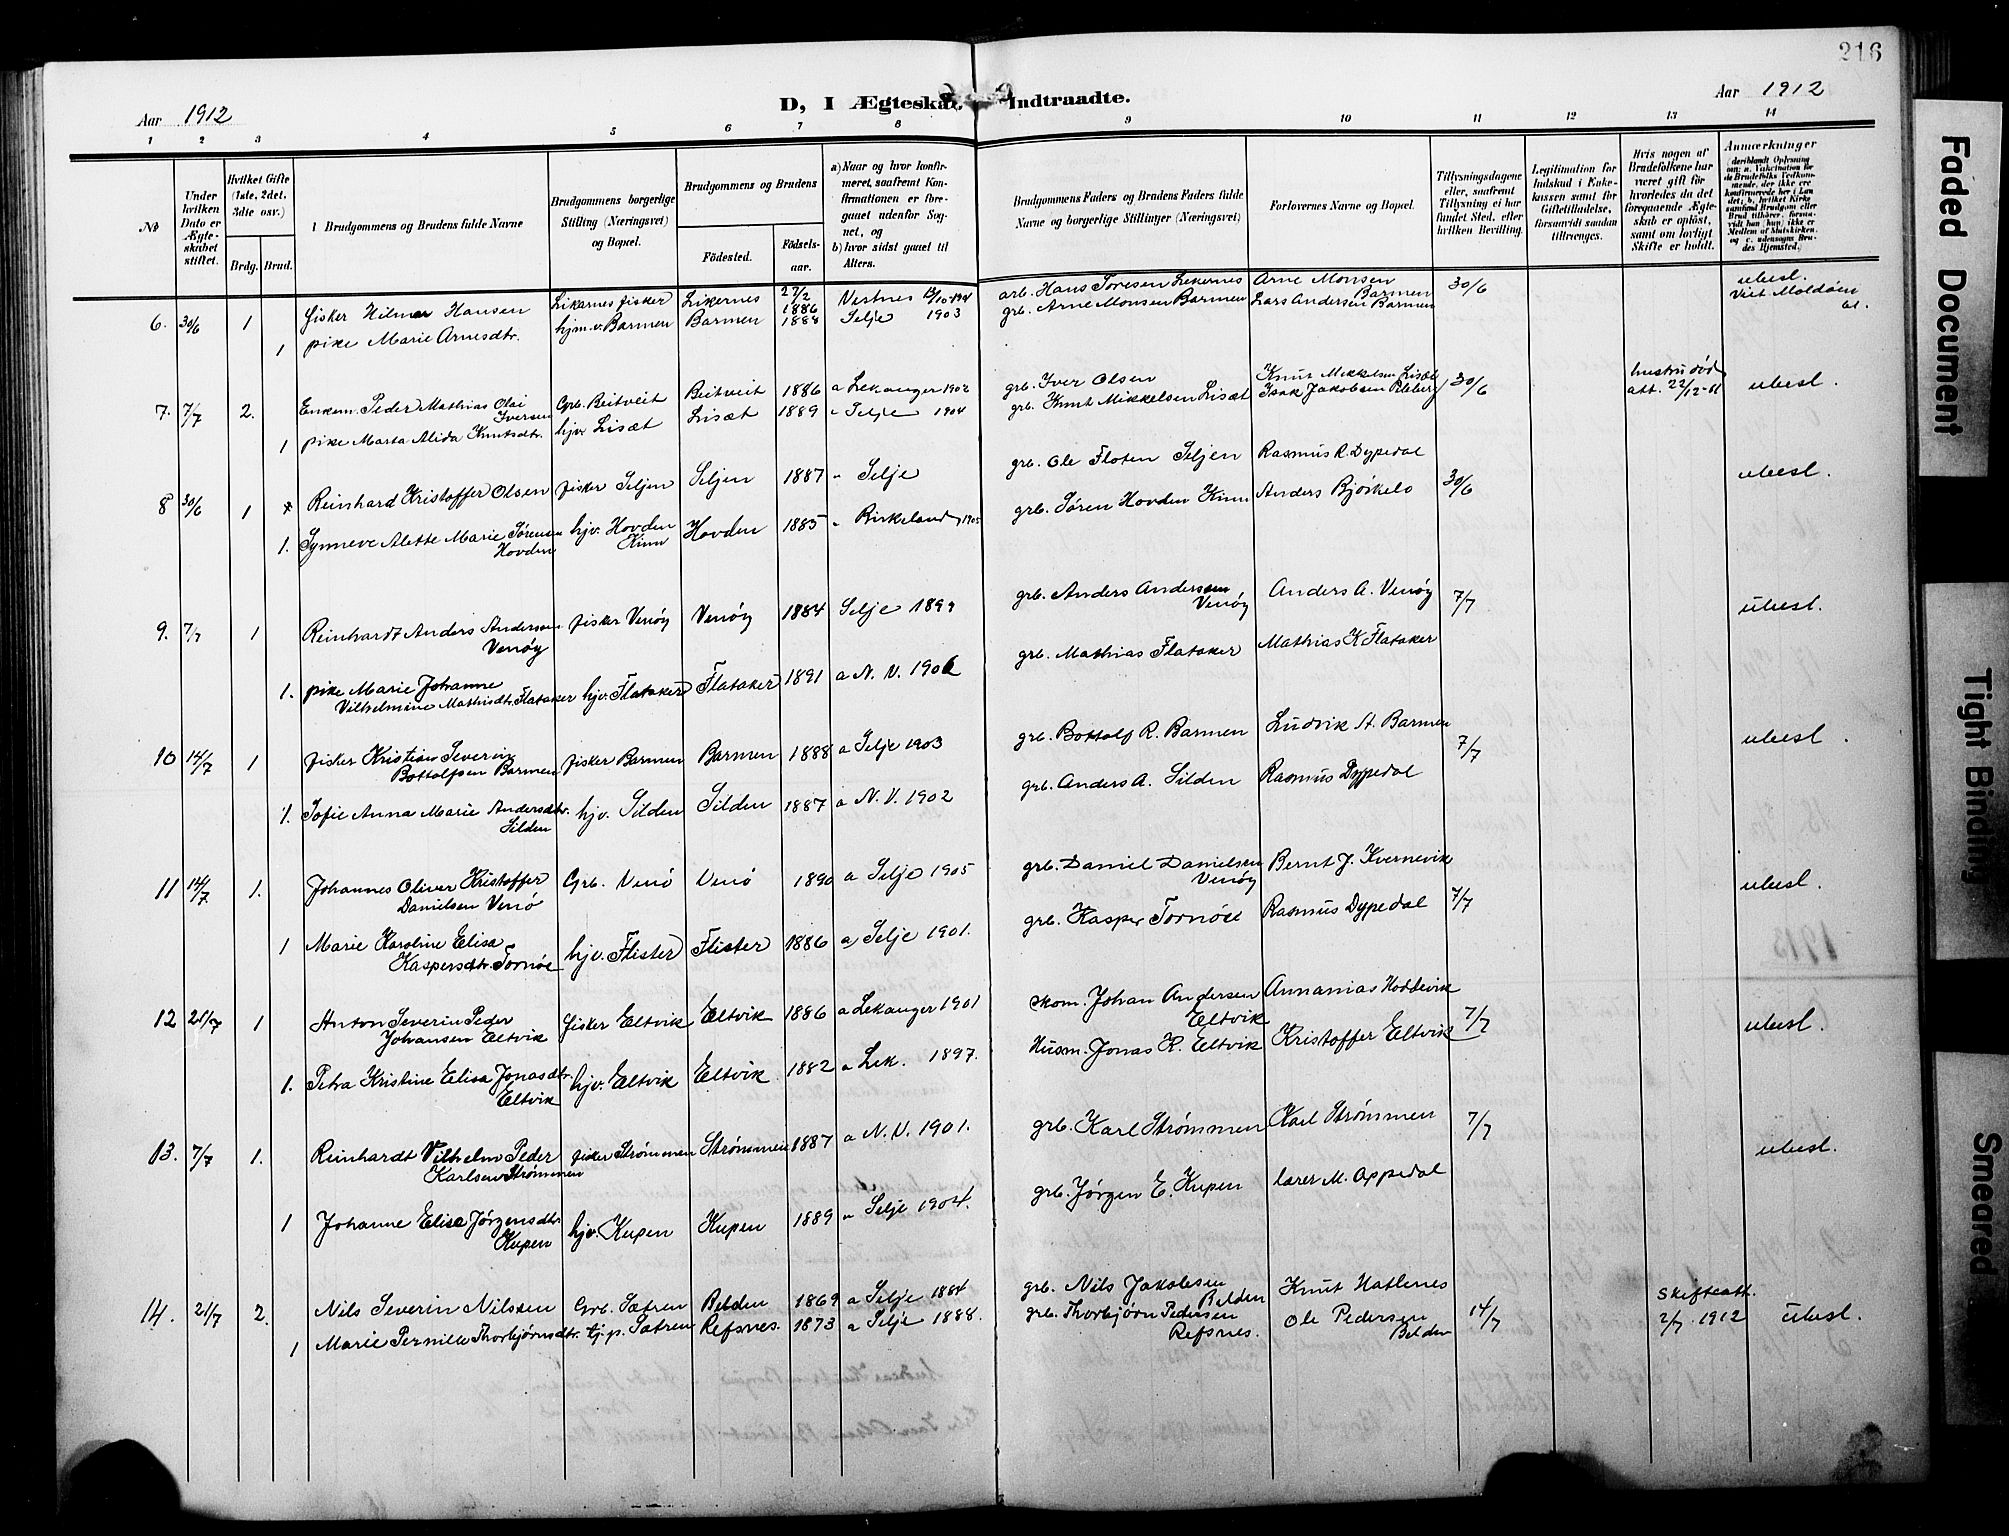 216
D, I Ægteskab Indtraadte.
Aar 1912
Aar 1912
1 2 3 4 5 6 7 8 9 10 11 12 13 14
No
Under hvilken Dato er Ægteskabet stiftet.
Hvilket Gifte (1ste, 2det, 3dte osv.)
Brdg. Brud.
Brudgommens og Brudens fulde Navne
Brudgommens borgerlige Stilling (Næringsvei) og Bopæl.
Brudgommens og Brudens
Födested.
Födselsaar.
a) Naar og hvor konfirmeret, saafremt Konfirmationen er foregaaet udenfor Sognet, og
b) hvor sidst gaaet til Alters.
Brudgommens Faders og Brudens Faders fulde Navne og borgerlige Stillinger (Næringsvei)
Forlovernes Navne og Bopæl.
Tillysningsdagene eller, saafremt Tillysning ei har fundet Sted, efter hvilken Bevilling.
Legitimation for Indskud i Enkekassen samt for Giftetilladelse, forsaavidt saadan tiltrænges.
Hvis nogen af Brudefolkene har været gift för hvorledes da det foregaaende Ægteskab er oplöst, samt om lovligt Skifte er holdt.
Anmerkninger
6. 30/6 1 fisker Hilmar Hansen Likarnes fisker Likernes 27/2 1886 Vestnes
arb. Hans Toresen Lekernes Arne Monsen Barmen 30/6 ubesl.
1 pike Marie Arnesdtr. hjm. v. Barmen Barmen 1888 Selje 1903
grb. Arne Monsen Barmen Lars Andersen Barmen
7. 7/7 2. Enkem. Peder Mathias Olai Iversen Grb. Beitveit Beitveit 1886 a Lekanger 1902
grb. Iver Olsen Knut Mikkelsen Lisæt 30/6 hustru død att. 22/12-11 ubesl.
1 pike Marta Alida Knutsdtr. hjv. Lisæt Lisæt 1889 " Selje 1904
grb. Knut Mikkelsen Lisæt Isak Jakobsen
8 30/6 1 Reinhard Kristoffer Olsen fisker Seljen Seljen 1887 " Selje
grb. Ole Floten Seljen Rasmus R. Dypedal 30/6 ubesl.
1. Synneve Alette Marie Sørensen Hovden hjv. Hovden Kinn Hovden 1885 " Birkeland 1905
grb. Søren Hovden Kinn Anders Bjørkelo
9. 7/7 1 Reinhardt Anders Andersen Venøy fisker Venøy Venøy 1884 Selje 1899
grb. Anders Andersen Venøy Anders A. Venøy 7/7 ubesl.
1. pike Marie Johanne Vilhelmine Mathisdtr. Flataker hjv. Flataker Flataker 1891 a N. V. 1906
grb. Mathias Flataker Mathias K Flataker
10 14/7 1 fisker Kristian Severin Bottolfsen Barmen fisker Barmen Barmen 1888 a Selje 1903
grb. Bottolf R. Barmen Ludvik A. Barmen 7/7 ubesl.
1. Sofie Anna Marie Andersdtr. Silden hjv. Silden Silden 1887 a N. V. 1902
grb. Anders A. Silden Rasmus Dypedal
11 14/7 1. Johannes Oliver Kristoffer Danielsen Venö Grb. Venö Venö 1890 a Selje 1905
grb. Daniel Danielsen Venøy Bernt J. Kvernevik 7/7 ubesl.
1 Marie Karoline Elisa Kaspersdtr. Tornöe hjv. Flister Flister 1886 a Selje 1901.
grb. Kasper Tornöe Rasmus Dypedal
12 21/7 1 Anton Severin Peder Johansen Eltvik fisker Eltvik Eltvik 1886 a Lekanger 1901
skom. Johan Andersen Eltvik Annanias Hoddevik 7/7 ubesl.
1. Petra Kristine Elisa Jonasdtr. Eltvik hjv. Eltvik Eltvik 1882 a Lek. 1897.
Husm. Jonas K. Eltvik Kristoffer Eltvik
13. 7/7 1. Reinhardt Vilhelm Peder Karlsen Strømmen fisker Strømmen Strømmen 1887 a N. V. 1901.
grb. Karl Strømmen Karl Strømmen 7/7 ubesl.
1 Johanne Elise Jørgensdtr. Kupen hjv. Kupen Kupen 1889 " Selje 1904.
grb. Jørgen E. Kupen lærer M. Appedal
14. 21/7 2. Nils Severin Nilssen Grb. Sætren Belden 1869 a Selje 1884
grb. Nils Jakobsen Belden Knut Hatlenes 14/7 Skifteatt. 2/7 1912 ubesl.
1 Marie Pernille Thorbjørnsdtr. tj.p. Sætren Refsnes. 1873 a Selje 1888.
grb. Thorbjørn Pedersen Refsnes. Ole Pedersen Belden
Faded Document
Tight Binding
Smeared